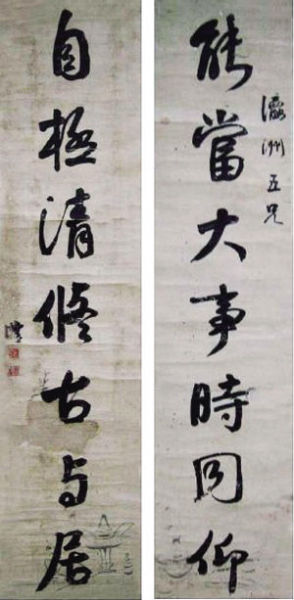 瀛洲五兄
能當大事時同仰
自極清修古与居